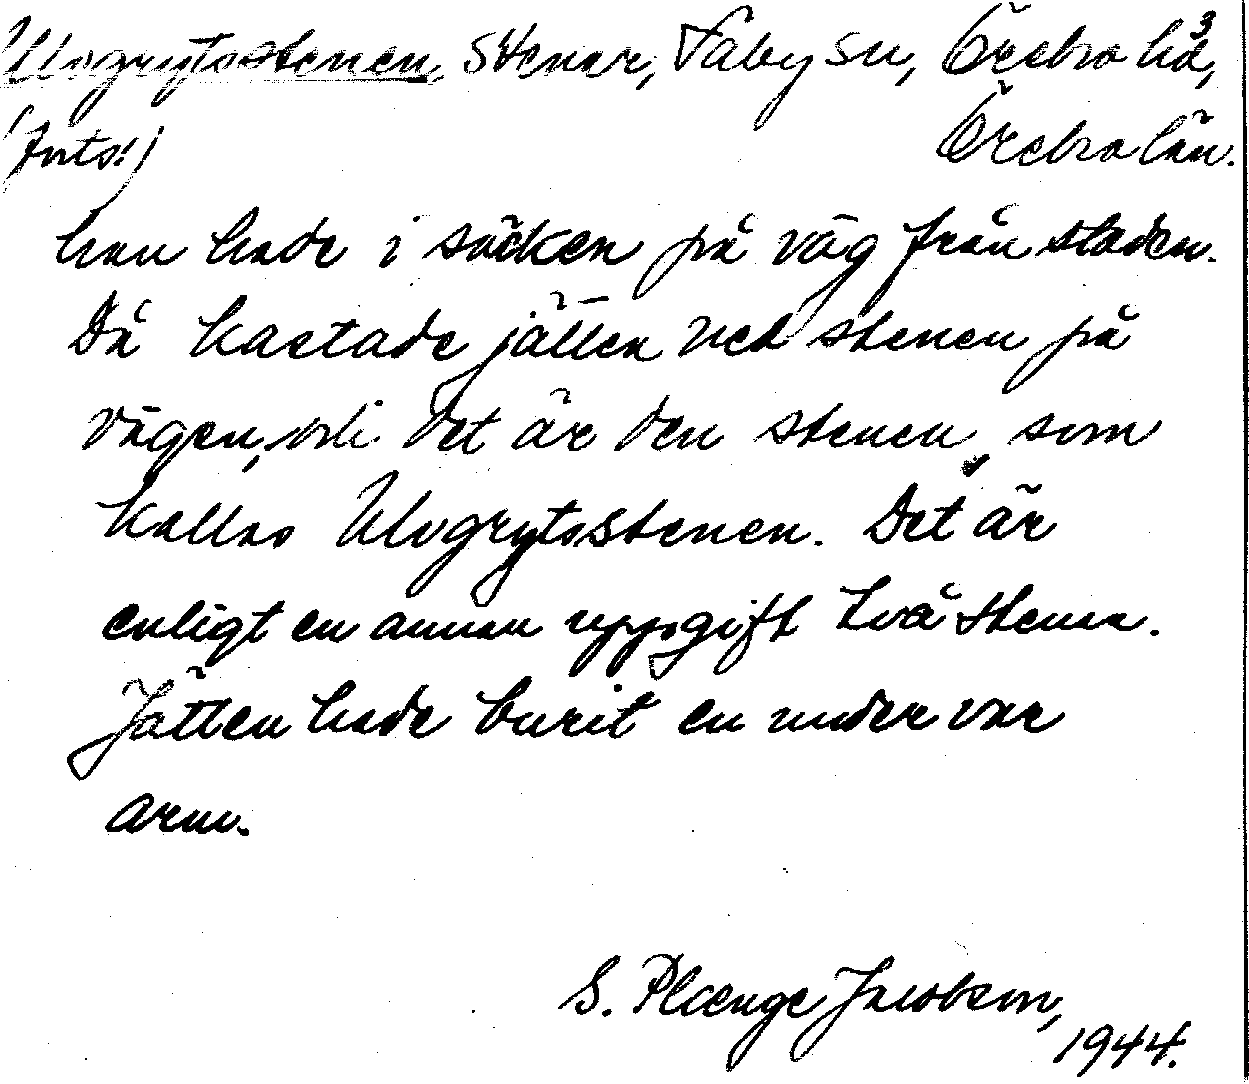 Ulvgrytsstenen, stenar, Täby sn, Örebro hd, 3
(Forts.) Örebro län.
han hade i säcken på väg från staden.
Då kastade jätten ned stenen på
vägen, och det är den stenen, som
kallas Ulvgrytsstenen. Det är
enligt en annan uppgift två stenar.
Jätten hade burit en under var
arm.
S. Plænge Jacobson,
1944.